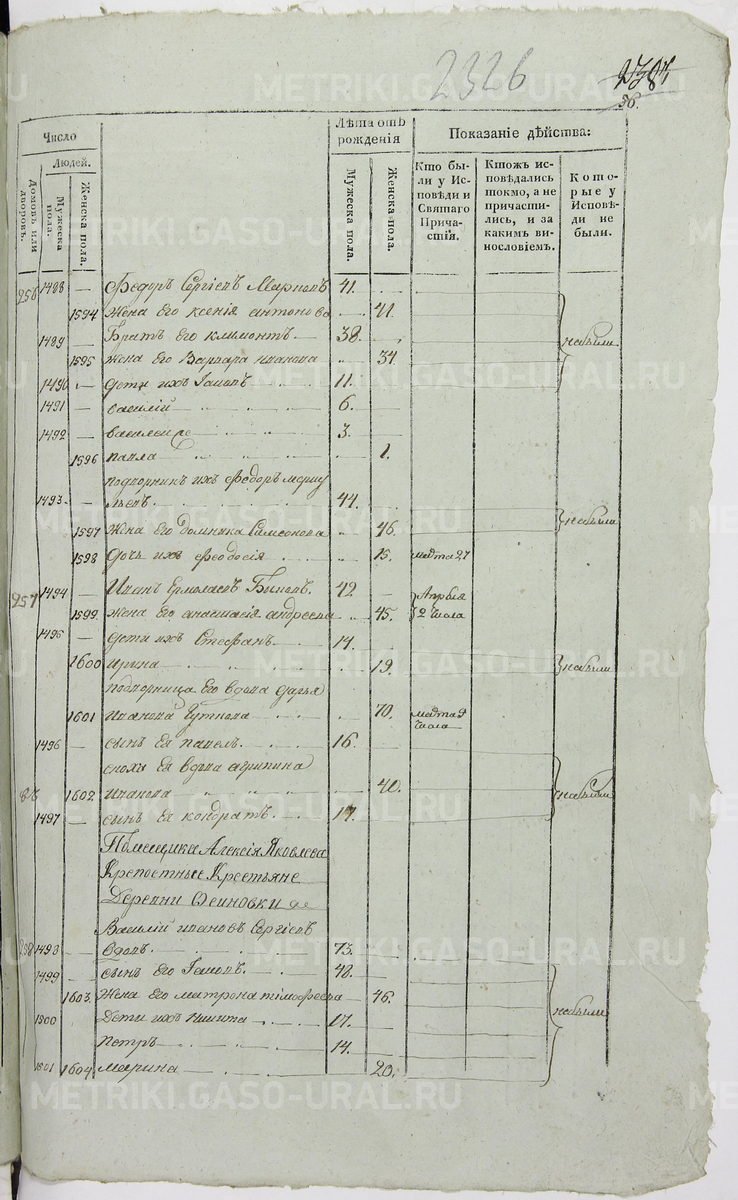 2326
2387
36.
Число
Людей.
Домовъ или дворовъ.
Мужеска пола.
Женска пола.
Лѣта отъ рожденія
Мужеска пола.
Женска пола.
Показаніе дѣйства:
Кто бы-
ли у Ис-
повѣди и
Святаго
Прича-
стія.
Ктожъ ис-
повѣдались
токмо, а не
причасти-
лись, и за
какимъ ви-
нословіемъ.
Кото-
рые у
Исповѣ-
ди не
были.
256 1488 — Федуръ Сергіевъ 41.
1594 жена Его ксенія антонова 41.
1489 — Братъ Его климонтъ 38. небыли
1595 жена Его Варвара иванова 34.
1490 — дети ихъ 11.
1491 — василій 6.
1492 — 3.
1596 павла 1.
подворникъ ихъ Федоръ
1493 — 44.
1597 жена Его домника Самсонова 46. небыли
1598 дочь ихъ Феодосія 15. марта 27
257 1494 — Иванъ Ермолаевъ 42 Апреля
1599 жена Его анастасія андреева 45. 2 числа
1495 — дети ихъ Стефанъ 14.
1600 ирина 19. небыли
подворница Его вдова дарья
1601 Иванова 70. марта 9 числа
1496 — сынъ Ея павелъ 16.
сноха Ея вдова агрипина
1602 Иванова 40. небыли
1497 — сынъ Ея кондратъ 17.
Помещика Алексія Яковлева
Крепостные Крестьяне
Деревни Осиновки
Василій ивановъ Сергіевъ
1498 — вдовъ 73.
1499 — сынъ Его 48.
1603 жена Его матрона тімофеева 46. небыли
1500 Дети ихъ Никита 17.
Петръ 14.
1501 1604 марина 20.
METRIKI.GASO-URAL.RU